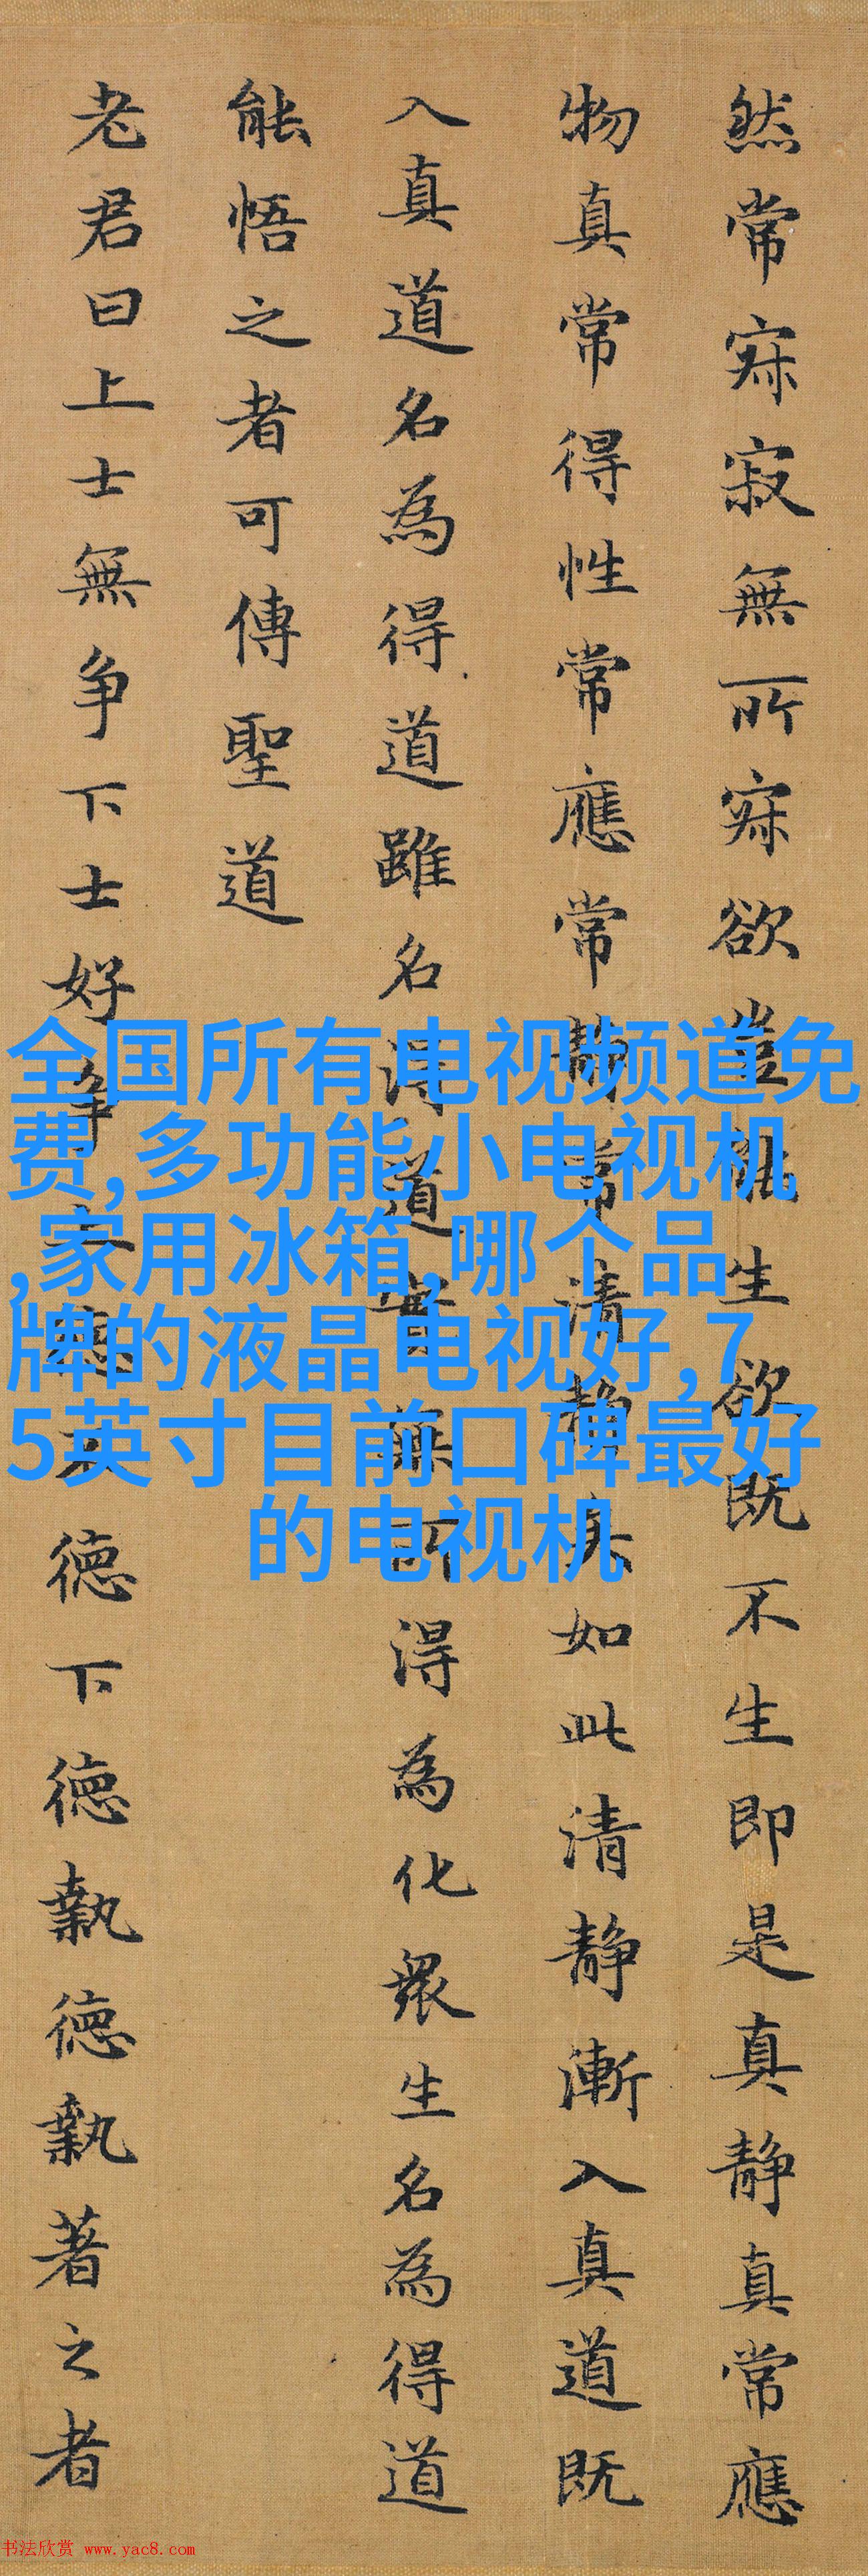 然常寂寂無所寂欲豈能生欲既不生即是真静真常應
物真常得性常應常静常清静矣如此清静漸入真道既
入真道名為得道雖名得道實無所得為化衆生名為得道
能悟之者可傳聖道
老君曰上士無争下士好争上德不德下德執德執著之者
全国所有电视频道免
费,多功能小电视机
,家用冰箱,哪个品
牌的液晶电视好,7
5英寸目前口碑最好
的电视机
书法欣赏 www.yac8.com